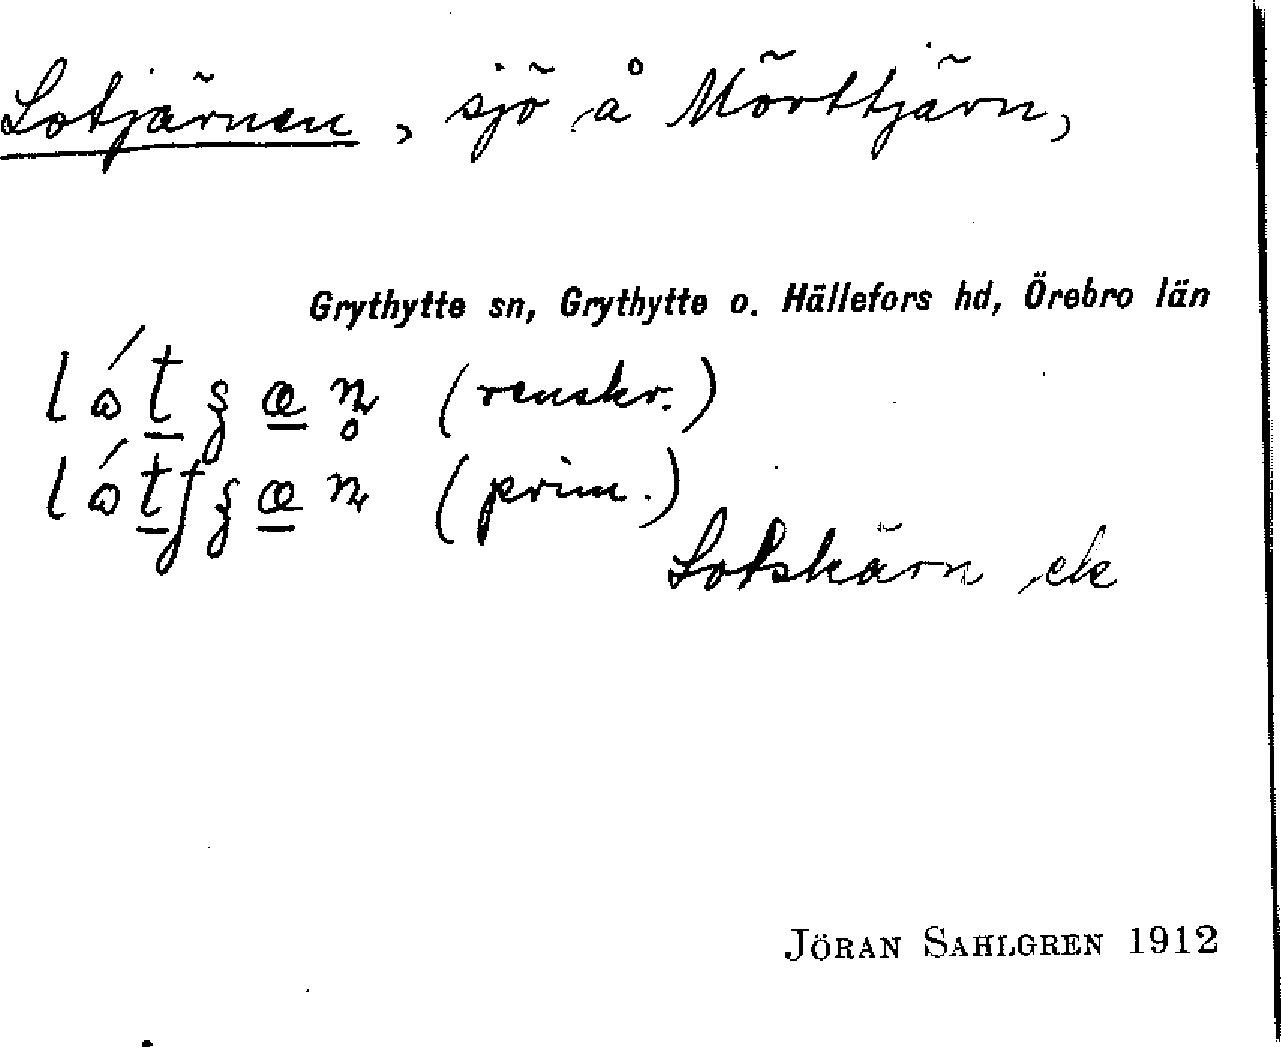 Lotjärnen, sjö å Mörttjärn,
Grythytte sn, Grythytte o. Hällefors hd, Örebro län
(renskr.)
(prim.)
Lotskärn ek
JÖRAN SAHLGREN 1912